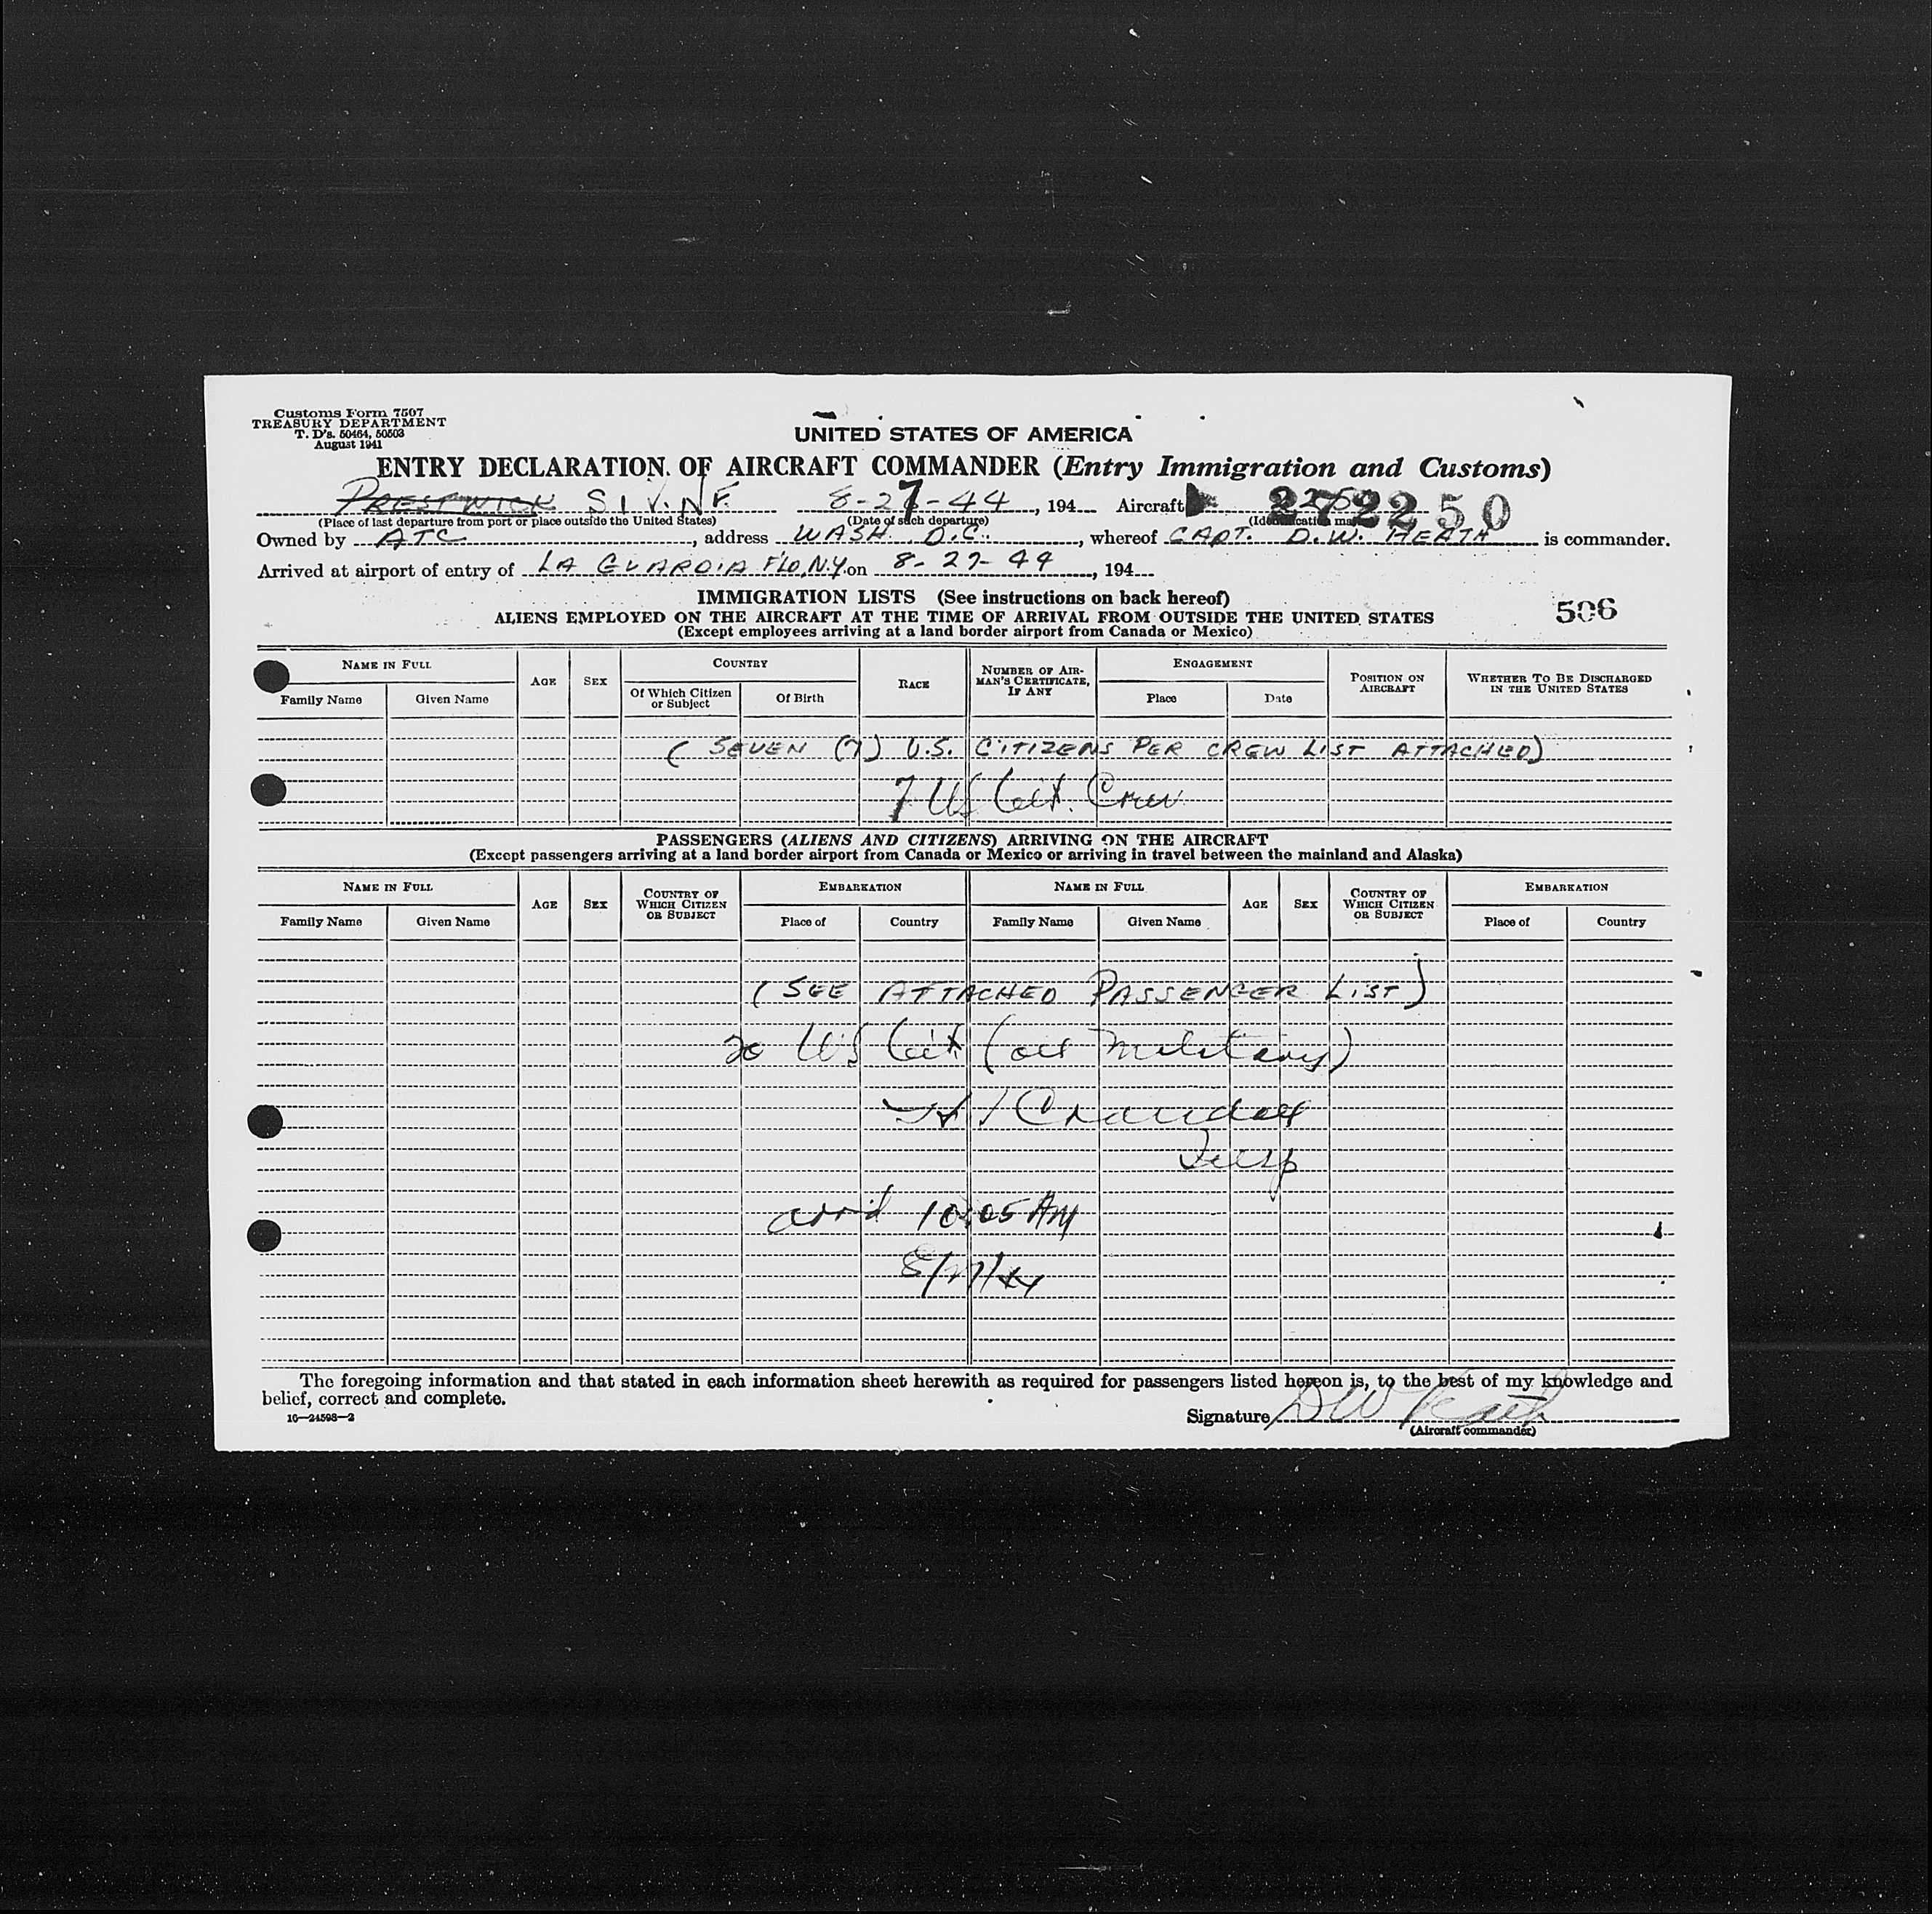 Customs Form 7507
TREASURY DEPARTMENT
T. D's. 50464, 50503
August 1941
UNITED STATES OF AMERICA
ENTRY DECLARATION OF AIRCRAFT COMMANDER (Entry Immigration and Customs)
PRESTWICK S I V. N F. 8-27-44, 194 Aircraft 272250
(Place of last departure from port or place outside the United States) (Date of such departure) (Identification mark)
Owned by ATC, address WASH. D.C., whereof CAPT. D.W. HEATH is commander.
Arrived at airport of entry of LA GUARDIA FLD, N.Y. on 8-27-44, 194
IMMIGRATION LISTS (See instructions on back hereof)
506
ALIENS EMPLOYED ON THE AIRCRAFT AT THE TIME OF ARRIVAL FROM OUTSIDE THE UNITED STATES
(Except employees arriving at a land border airport from Canada or Mexico)
NAME IN FULL AGE SEX COUNTRY RACE NUMBER OF AIRMAN'S CERTIFICATE, IF ANY ENGAGEMENT POSITION ON AIRCRAFT WHETHER TO BE DISCHARGED IN THE UNITED STATES
Family Name Given Name Of Which Citizen or Subject Of Birth Place Date
( SEVEN (7) U.S. CITIZENS PER CREW LIST ATTACHED)
7 US Cit. Crew
PASSENGERS (ALIENS AND CITIZENS) ARRIVING ON THE AIRCRAFT
(Except passengers arriving at a land border airport from Canada or Mexico or arriving in travel between the mainland and Alaska)
NAME IN FULL AGE SEX COUNTRY OF WHICH CITIZEN OR SUBJECT EMBARKATION NAME IN FULL AGE SEX COUNTRY OF WHICH CITIZEN OR SUBJECT EMBARKATION
Family Name Given Name Place of Country Family Name Given Name Place of Country
( SEE ATTACHED PASSENGER LIST)
20 US Cit (all military)
Crandall
Insp
arr'd 10:05 AM
8/27/44
The foregoing information and that stated in each information sheet herewith as required for passengers listed hereon is, to the best of my knowledge and
belief, correct and complete.
16—24598—2
Signature DW Heath
(Aircraft commander)